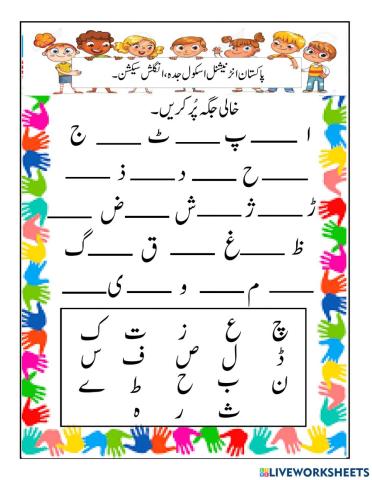 پاکستان انٹرنیشنل اسکول جدہ، انگلش سیکشن۔
خالی جگہ پُر کریں۔
ا ____ پ ____ ٹ ____ ج
____ ح ____ د ____ ذ ____
ڑ ____ ژ ____ ش ____ ض ____
ظ ____ غ ____ ق ____ گ
____ م ____ و ____ ی ____
چ ع ز ت ک
ڈ ل ص ف س
ن ب ح ط ے
ث ر ہ
LIVEWORKSHEETS